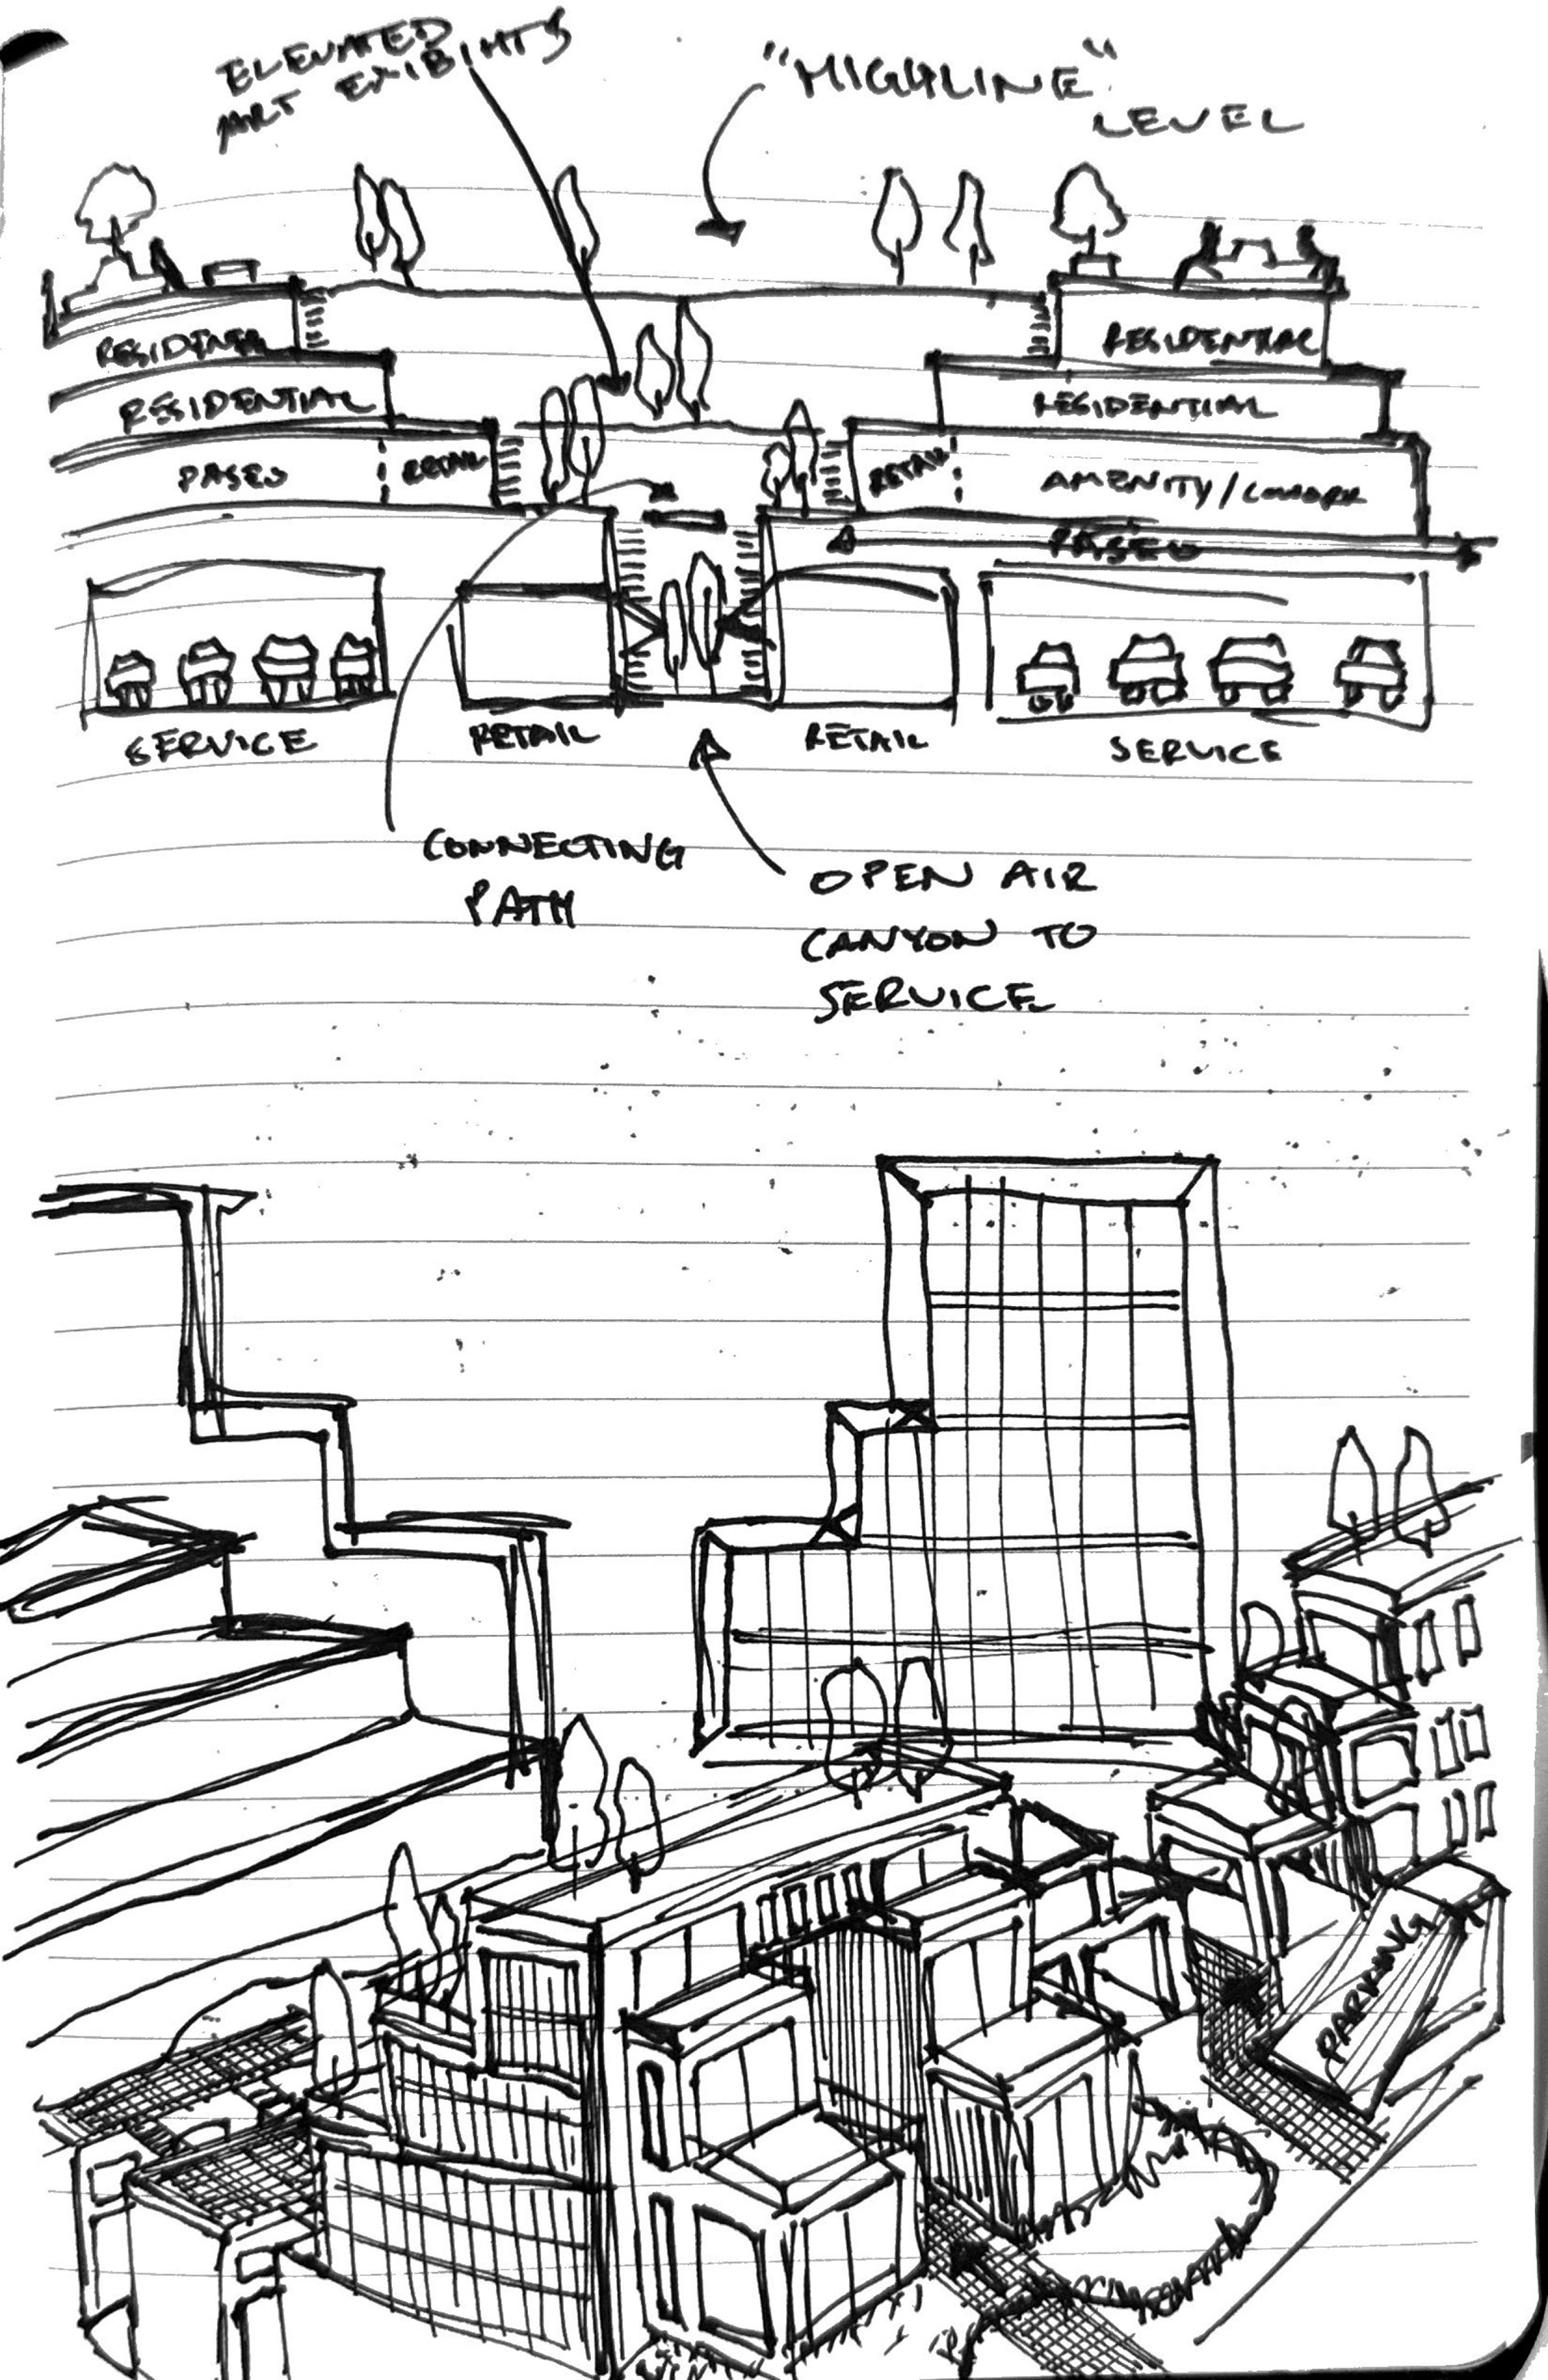 ELEVATED
ART EXIBIHTS
"HIGHLINE"
LEVEL
RESIDENTIAL
RESIDENTIAL
RESIDENTIAL
RESIDENTIAL
PASEO
RETAIL
RETAIL
AMENITY/COWORK
PASEO
SERVICE
RETAIL
RETAIL
SERVICE
CONNECTING
PATH
OPEN AIR
CANYON TO
SERVICE
PARKING